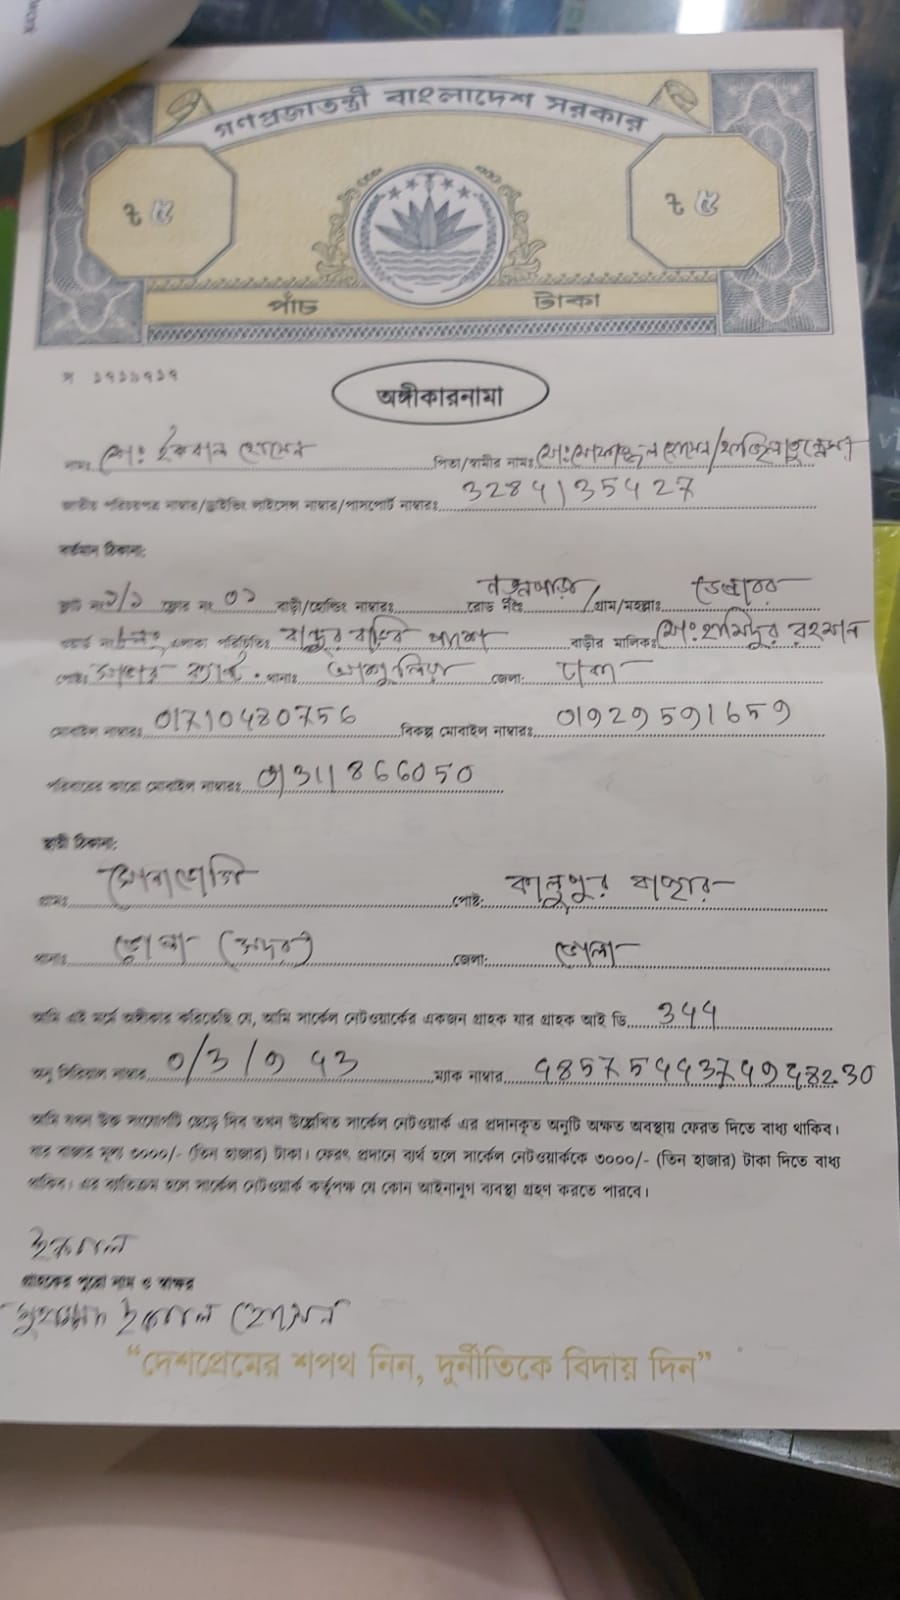 গণপ্রজাতন্ত্রী বাংলাদেশ সরকার
৳ ৫ ৳ ৫
পাঁচ টাকা
অঙ্গীকারনামা
নামঃ মোঃ ইকবাল হোসেন পিতা/স্বামীর নামঃ
জাতীয় পরিচয়পত্র নাম্বার/ড্রাইভিং লাইসেন্স নাম্বার/পাসপোর্ট নাম্বারঃ 3284135427
বর্তমান ঠিকানা:
ফ্ল্যাট নং ফ্লোর নং ০১ বাড়ী/হোল্ডিং নাম্বারঃ রোড নংঃ /গ্রাম/মহল্লাঃ
এলাকা পরিচিতিঃ বাড়ীর মালিকঃ মোঃ হামিদুর রহমান
পোষ্টঃ থানাঃ আশুলিয়া জেলা: ঢাকা
মোবাইল নাম্বারঃ 01710480756 বিকল্প মোবাইল নাম্বারঃ 01929591659
পরিবারের কারো মোবাইল নাম্বারঃ 01311866050
স্থায়ী ঠিকানা:
গ্রামঃ পোষ্ট: কালুপুর বাজার
থানাঃ ভোলা (সদর) জেলা: ভোলা
আমি এই মর্মে অঙ্গীকার করিতেছি যে, আমি সার্কেল নেটওয়ার্কের একজন গ্রাহক যার গ্রাহক আই ডি 344
অনু সিরিয়াল নাম্বার ম্যাক নাম্বার
আমি যখন উক্ত সংযোগটি ছেড়ে দিব তখন উল্লেখিত সার্কেল নেটওয়ার্ক এর প্রদানকৃত অনুটি অক্ষত অবস্থায় ফেরত দিতে বাধ্য থাকিব।
যার বাজার মূল্য ৩০০০/- (তিন হাজার) টাকা। ফেরৎ প্রদানে ব্যর্থ হলে সার্কেল নেটওয়ার্ককে ৩০০০/- (তিন হাজার) টাকা দিতে বাধ্য
থাকিব। এর ব্যতিক্রম হলে সার্কেল নেটওয়ার্ক কর্তৃপক্ষ যে কোন আইনানুগ ব্যবস্থা গ্রহণ করতে পারবে।
ইকবাল
গ্রাহকের পুরো নাম ও স্বাক্ষর
মুহাম্মদ ইকবাল হোসেন
“দেশপ্রেমের শপথ নিন, দুর্নীতিকে বিদায় দিন”